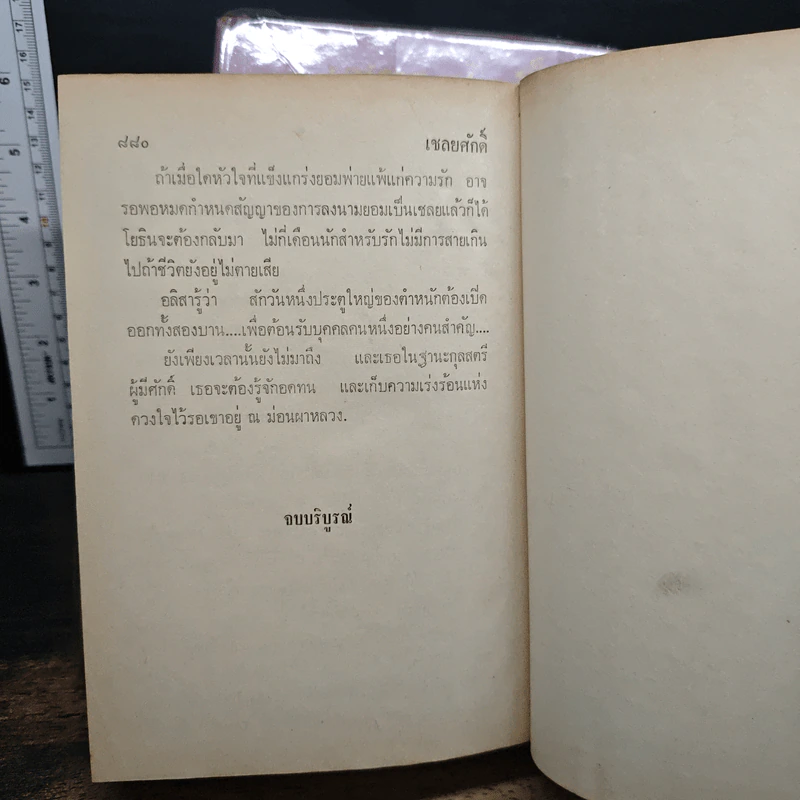 ๘๘๐ เชลยศักดิ์
ถ้าเมื่อใดหัวใจที่แข็งแกร่งยอมพ่ายแพ้แก่ความรัก อาจ
รอพอหมดกำหนดสัญญาของการลงนามยอมเป็นเชลยแล้วก็ได้
โยธินจะต้องกลับมา ไม่กี่เดือนนักสำหรับรักไม่มีการสายเกิน
ไปถ้าชีวิตยังอยู่ไม่ตายเสีย
อลิสารู้ว่า สักวันหนึ่งประตูใหญ่ของตำหนักต้องเปิด
ออกทั้งสองบาน....เพื่อต้อนรับบุคคลคนหนึ่งอย่างคนสำคัญ....
ยังเพียงเวลานั้นยังไม่มาถึง และเธอในฐานะกุลสตรี
ผู้มีศักดิ์ เธอจะต้องรู้จักอดทน และเก็บความเร่งร้อนแห่ง
ดวงใจไว้รอเขาอยู่ ณ ม่อนผาหลวง.
จบบริบูรณ์